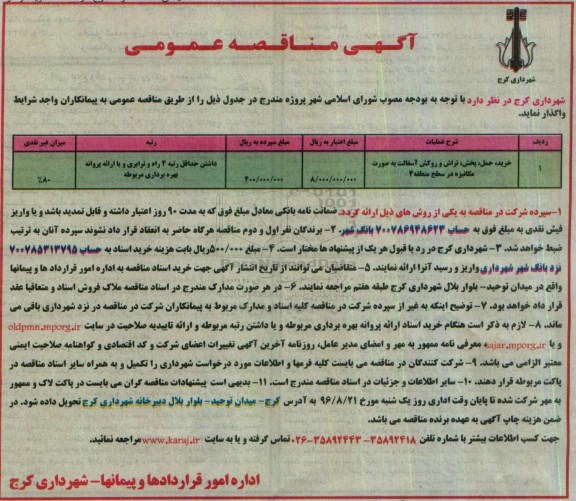 آگهی مناقصه عمومی
شهرداری کرج
شهرداری کرج در نظر دارد با توجه به بودجه مصوب شورای اسلامی شهر پروژه مندرج در جدول ذیل را از طریق مناقصه عمومی به پیمانکاران واجد شرایط
واگذار نماید.
ردیف شرح عملیات مبلغ اعتبار به ریال مبلغ سپرده به ریال رتبه میزان غیر نقدی
۱ خرید، حمل، پخش، تراش و روکش آسفالت به صورت مکانیزه در سطح منطقه ۴ ۸/۰۰۰/۰۰۰/۰۰۰ ۴۰۰/۰۰۰/۰۰۰ داشتن حداقل رتبه ۴ راه و ترابری و یا ارائه پروانه بهره برداری مربوطه ۸۰٪
۱-سپرده شرکت در مناقصه به یکی از روش های ذیل ارائه گردد. ضمانت نامه بانکی معادل مبلغ فوق که به مدت ۹۰ روز اعتبار داشته و قابل تمدید باشد و یا واریز
فیش نقدی به مبلغ فوق به حساب ۷۰۰۷۸۶۹۴۸۶۲۳ بانک شهر. ۲- برندگان نفر اول و دوم مناقصه هرگاه حاضر به انعقاد قرار داد نشوند سپرده آنان به ترتیب
ضبط خواهد شد. ۳- شهرداری کرج در رد یا قبول هر یک از پیشنهاد ها مختار است. ۴- مبلغ ۵۰۰/۰۰۰ ریال بابت هزینه خرید اسناد به حساب ۷۰۰۷۸۵۳۱۳۷۹۵
نزد بانک شهر شهرداری واریز و رسید آنرا ارائه نمایند. ۵- متقاضیان می توانند از تاریخ انتشار آگهی جهت خرید اسناد مناقصه به اداره امور قرارداد ها و پیمانها
واقع در میدان توحید- بلوار بلال شهرداری کرج طبقه هفتم مراجعه نمایند. ۶- در هر صورت مدارک مندرج در اسناد مناقصه ملاک فروش اسناد و متعاقبا عقد
قرار داد خواهد بود. ۷- توضیح اینکه به غیر از سپرده شرکت در مناقصه کلیه اسناد و مدارک مربوط به پیمانکاران شرکت در مناقصه در نزد شهرداری باقی می
ماند. ۸- لازم به ذکر است هنگام خرید اسناد ارائه پروانه بهره برداری مربوطه و یا داشتن رتبه مربوطه و ارائه تاییدیه صلاحیت در سایت oldpmn.mporg.ir
و یا sajar.mporg.ir، معرفی نامه ممهور به مهر و امضای مدیر عامل، روزنامه آخرین آگهی تغییرات اعضای شرکت و کد اقتصادی و گواهنامه صلاحیت ایمنی
معتبر الزامی می باشد. ۹- شرکت کنندگان در مناقصه می بایست کلیه فرمها و اطلاعات مورد درخواست شهرداری را تکمیل و به همراه سایر اسناد مناقصه در
پاکت مربوطه قرار دهند. ۱۰- سایر اطلاعات و جزئیات در اسناد مناقصه مندرج است. ۱۱- بدیهی است پیشنهادات مناقصه گران می بایست در پاکت لاک و ممهور
به مهر شرکت شده تا پایان وقت اداری روز یک شنبه مورخ ۹۶/۸/۲۱ به آدرس کرج- میدان توحید- بلوار بلال دبیرخانه شهرداری کرج تحویل داده شود. در
ضمن هزینه چاپ آگهی به عهده برنده مناقصه می باشد.
جهت کسب اطلاعات بیشتر با شماره تلفن ۳۵۸۹۲۴۱۸- ۳۵۸۹۲۴۴۳-۰۲۶ تماس گرفته و یا به سایت www.karaj.ir مراجعه نمائید.
اداره امور قراردادها و پیمانها- شهرداری کرج